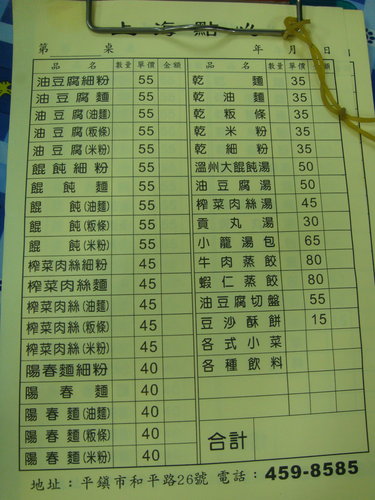 上海點心
第 桌 年 月 日
品名 數量 單價 金額
油豆腐細粉 55
油豆腐麵 55
油豆腐(油麵) 55
油豆腐(粄條) 55
油豆腐(米粉) 55
餛飩細粉 55
餛飩麵 55
餛飩(油麵) 55
餛飩(粄條) 55
餛飩(米粉) 55
榨菜肉絲細粉 45
榨菜肉絲麵 45
榨菜肉絲(油麵) 45
榨菜肉絲(粄條) 45
榨菜肉絲(米粉) 45
陽春麵細粉 40
陽春麵 40
陽春麵(油麵) 40
陽春麵(粄條) 40
陽春麵(米粉) 40
品名 數量 單價 額
乾麵 35
乾油麵 35
乾粄條 35
乾米粉 35
乾細粉 35
溫州大餛飩湯 50
油豆腐湯 50
榨菜肉絲湯 45
貢丸湯 30
小籠湯包 65
牛肉蒸餃 80
蝦仁蒸餃 80
油豆腐切盤 55
豆沙酥餅 15
各式小菜
各種飲料
合計
地址:平鎮市和平路26號 電話:459-8585